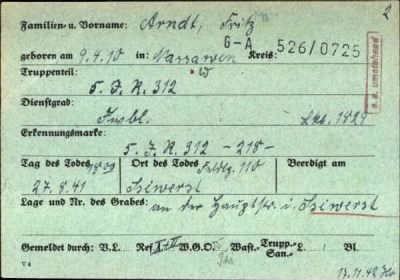 2
Familien- u. Vorname: Arndt, Fritz
G-A 526/0725
geboren am 9.4.10 in: Nassawen Kreis:
Truppenteil: W
5. I. R. 312
s. a. umstehend
Dienstgrad:
Fwbl. 1829
Erkennungsmarke:
5. I. R. 312 -218-
Tag des Todes Ort des Todes Feldlg. 110 Beerdigt am
27.8.41 Sziwerst
Lage und Nr. des Grabes: an der Hauptstr. i. Sziwerst
Gemeldet durch: V.L. Ref. I+II W.G.O. Wast.- Trupp.- L. Bl.
San.-
V 4 17.11.42